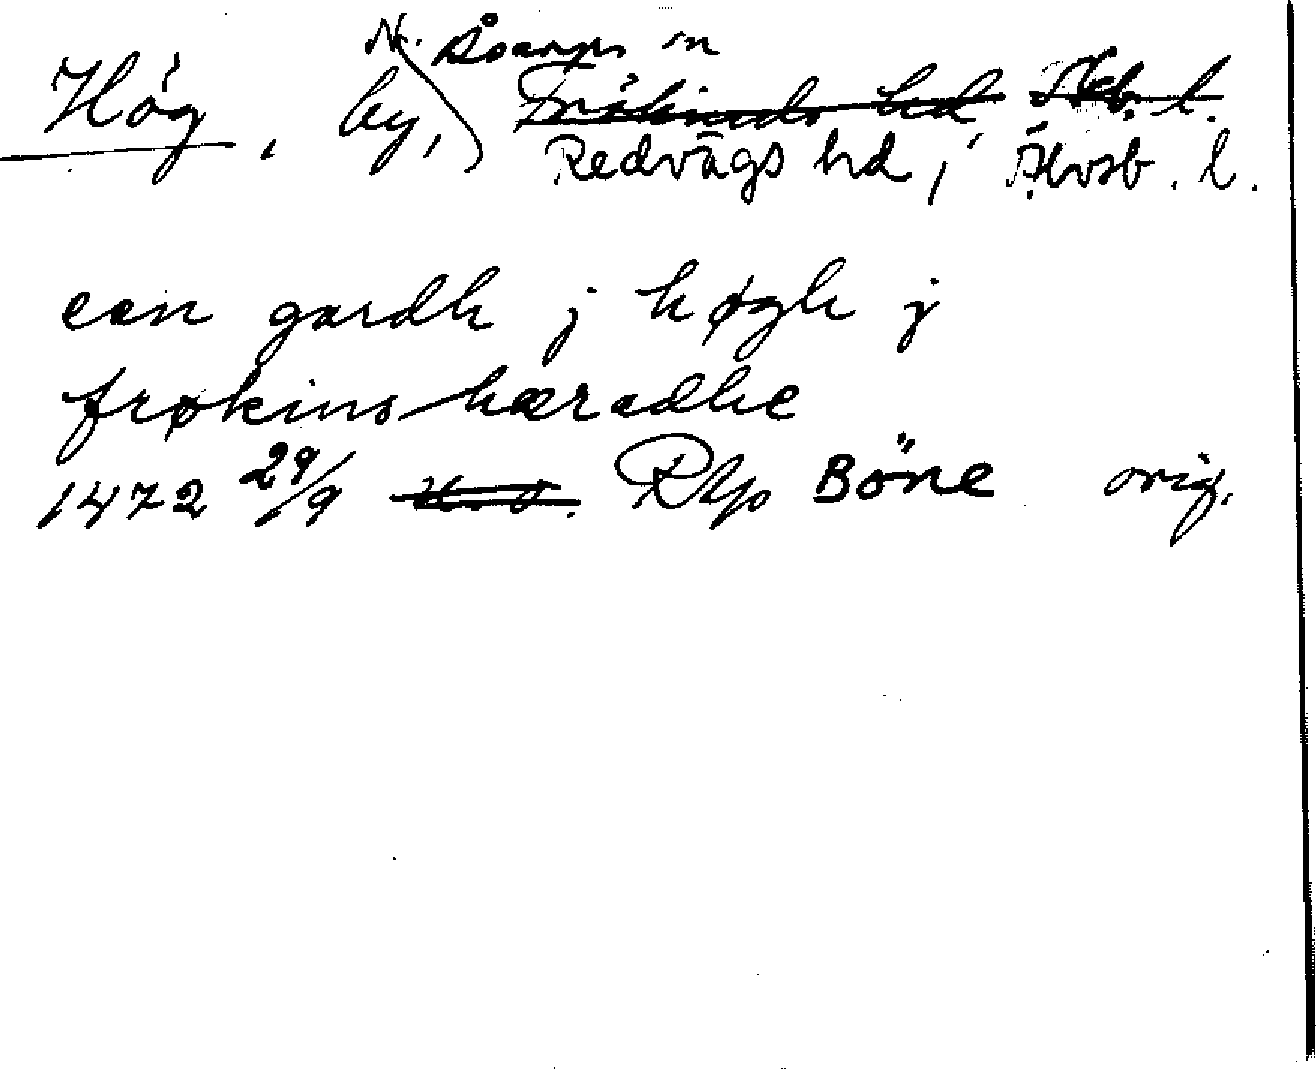 N. Åsarps sn
Hög, by, Frökinds hd, Skb. l.
Redvägs hd, Älvsb. l.
een gardh j høgh j
frøkinshæradhe
1472 29/9 Rep Böne orig.